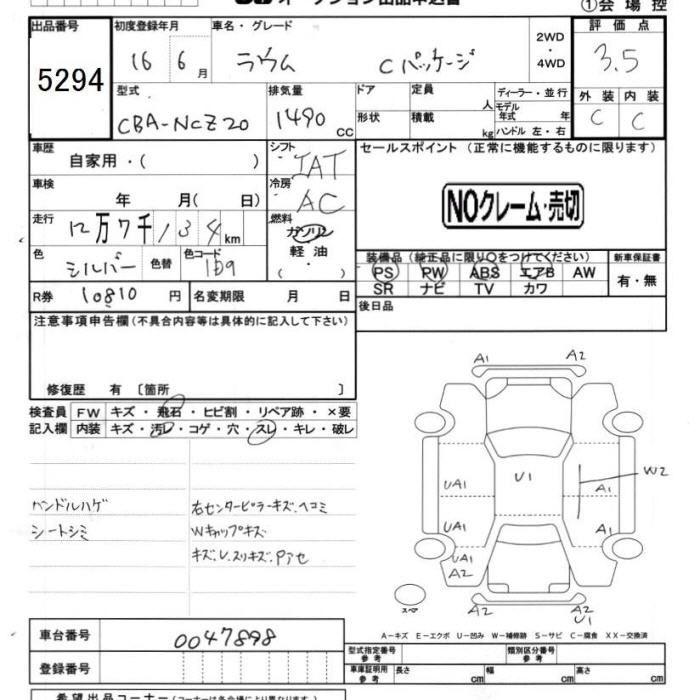 オークション出品申込書
①会場控
出品番号
5294
初度登録年月
16 6月
車名・グレード
ラウム Cパッケージ
2WD
・
4WD
評価点
3.5
型式
CBA-NCZ20
排気量
1490 cc
ドア
形状
定員 人
積載 kg
ディーラー・並行
モデル年式 年
ハンドル 左・右
外装 内装
C C
車歴
自家用・( )
シフト
IAT
セールスポイント (正常に機能するものに限ります)
NOクレーム・売切
車検
年 月( 日)
冷房
AC
走行
12万7千134km
燃料
ガソリン
軽油
( ・ )
色
シルバー
色替
色コード
1D9
装備品 (純正品に限り○をつけてください)
PS PW ABS エアB AW
SR ナビ TV カワ
新車保証書
有・無
R券 10810 円
名変期限 月 日
後日品
注意事項申告欄(不具合内容等は具体的に記入して下さい)
修復歴 有 〔箇所 〕
検査員記入欄
FW キズ・飛石・ヒビ割・リペア跡・×要
内装 キズ・汚レ・コゲ・穴・スレ・キレ・破レ
ハンドルハゲ
シートシミ
右センターピラーキズ、ヘコミ
Wキャップキズ
キズ、U、スリキズ、Pアセ
A1 A2
W2
U1
UA1 A1
UA1 A1
UA1
A2
スペア
A2 A2
U1
A－キズ E－エクボ U－凹み W－補修跡 S－サビ C－腐食 XX－交換済
車台番号
0047898
登録番号
型式指定番号 参考
類別区分番号 参考
車庫証明用 参考
長さ cm 幅 cm 高さ cm
希望出品コーナー